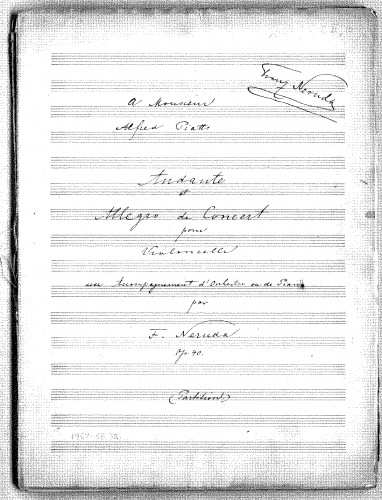 Franz Neruda
A Monsieur
Alfred Piatti
Andante
et
Allegro de Concert
pour
Violoncelle
avec Accompagnement d'Orchestre ou de Piano
par
F. Neruda
Op. 40.
(Partition)